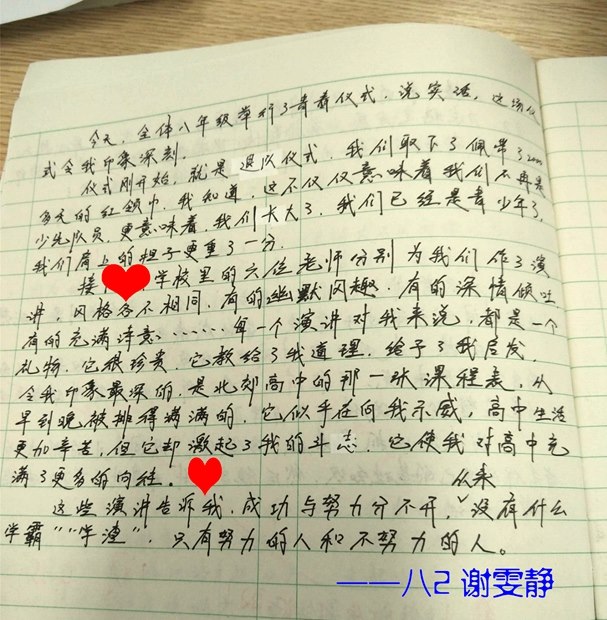 今天,全体八年级举行了青春仪式。说实话,这场仪
式令我印象深刻。
仪式刚开始,就是退队仪式,我们取下了佩带了2000
多天的红领巾,我知道,这不仅仅意味着我们不再是
少先队员,更意味着,我们长大了,我们已经是青少年了,
我们肩上的担子更重了一分。
接 学校里的六位老师分别为我们作了演
讲,风格各不相同,有的幽默风趣,有的深情倾吐,
有的充满诗意……每一个演讲对我来说,都是一个
礼物,它很珍贵,它教给了我道理,给予了我启发,
令我印象最深的,是北郊高中的那一张课程表,从
早到晚被排得满满的,它似乎在向我示威,高中生活
更加辛苦,但它却激起了我的斗志,它使我对高中充
满了更多的向往。
这些演讲告诉我,成功与努力分不开,从来没有什么
学霸""学渣",只有努力的人和不努力的人。
——八2 谢雯静